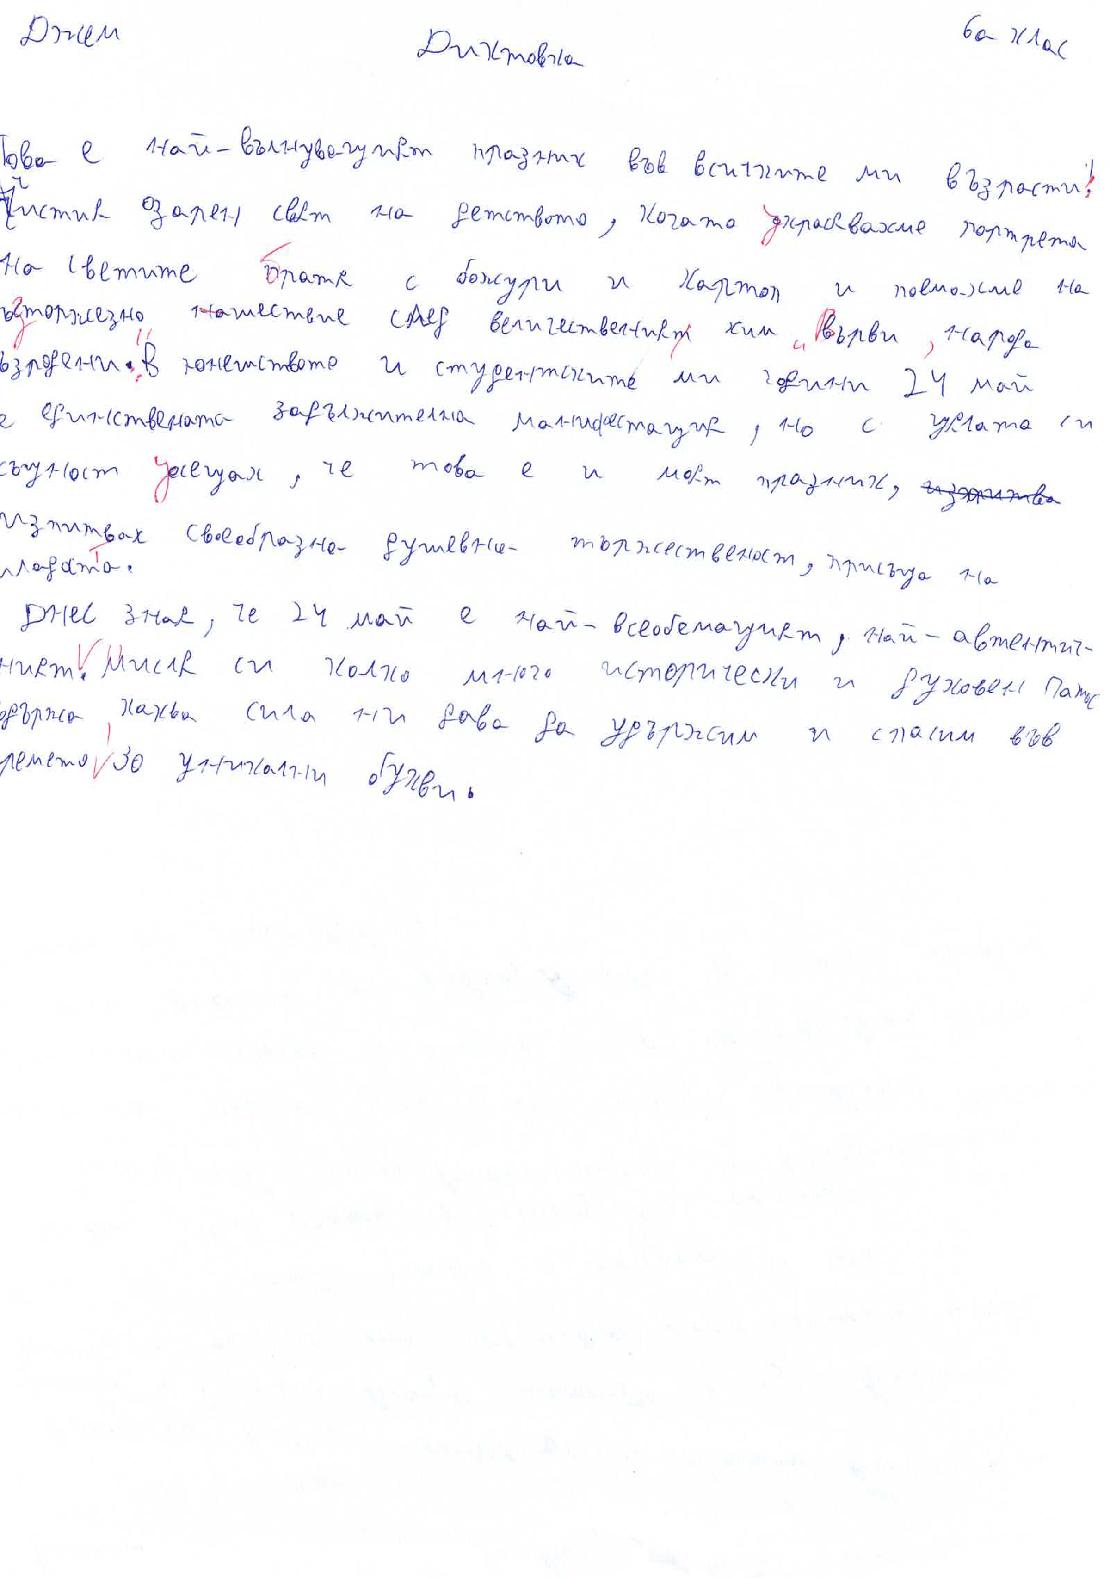 Джем
Диктовка
6а клас
Това е най-вълнуващият празник във всичките ми възрасти!
Чистия озарен свят на детството, когато украсвахме портрета
на светите братя с божури и хартоп и поемахме на
възторжезно нашествие след величественият хим „Върви, народе
възродени!" В юношеството и студентските ми години 24 май
е единствената задължителна манифестация, но с цялата си
същност усещах, че това е и моят празник,
изпитвах своеобразна душевна тържественост, присъща на
младата.
Днес зная, че 24 май е най-всеобемащият, най-автентич-
ният. Мисля си колко много исторически и духовен патос
държа, каква сила ни дава да удържим и спасим във
ремето 30 уникални букви.